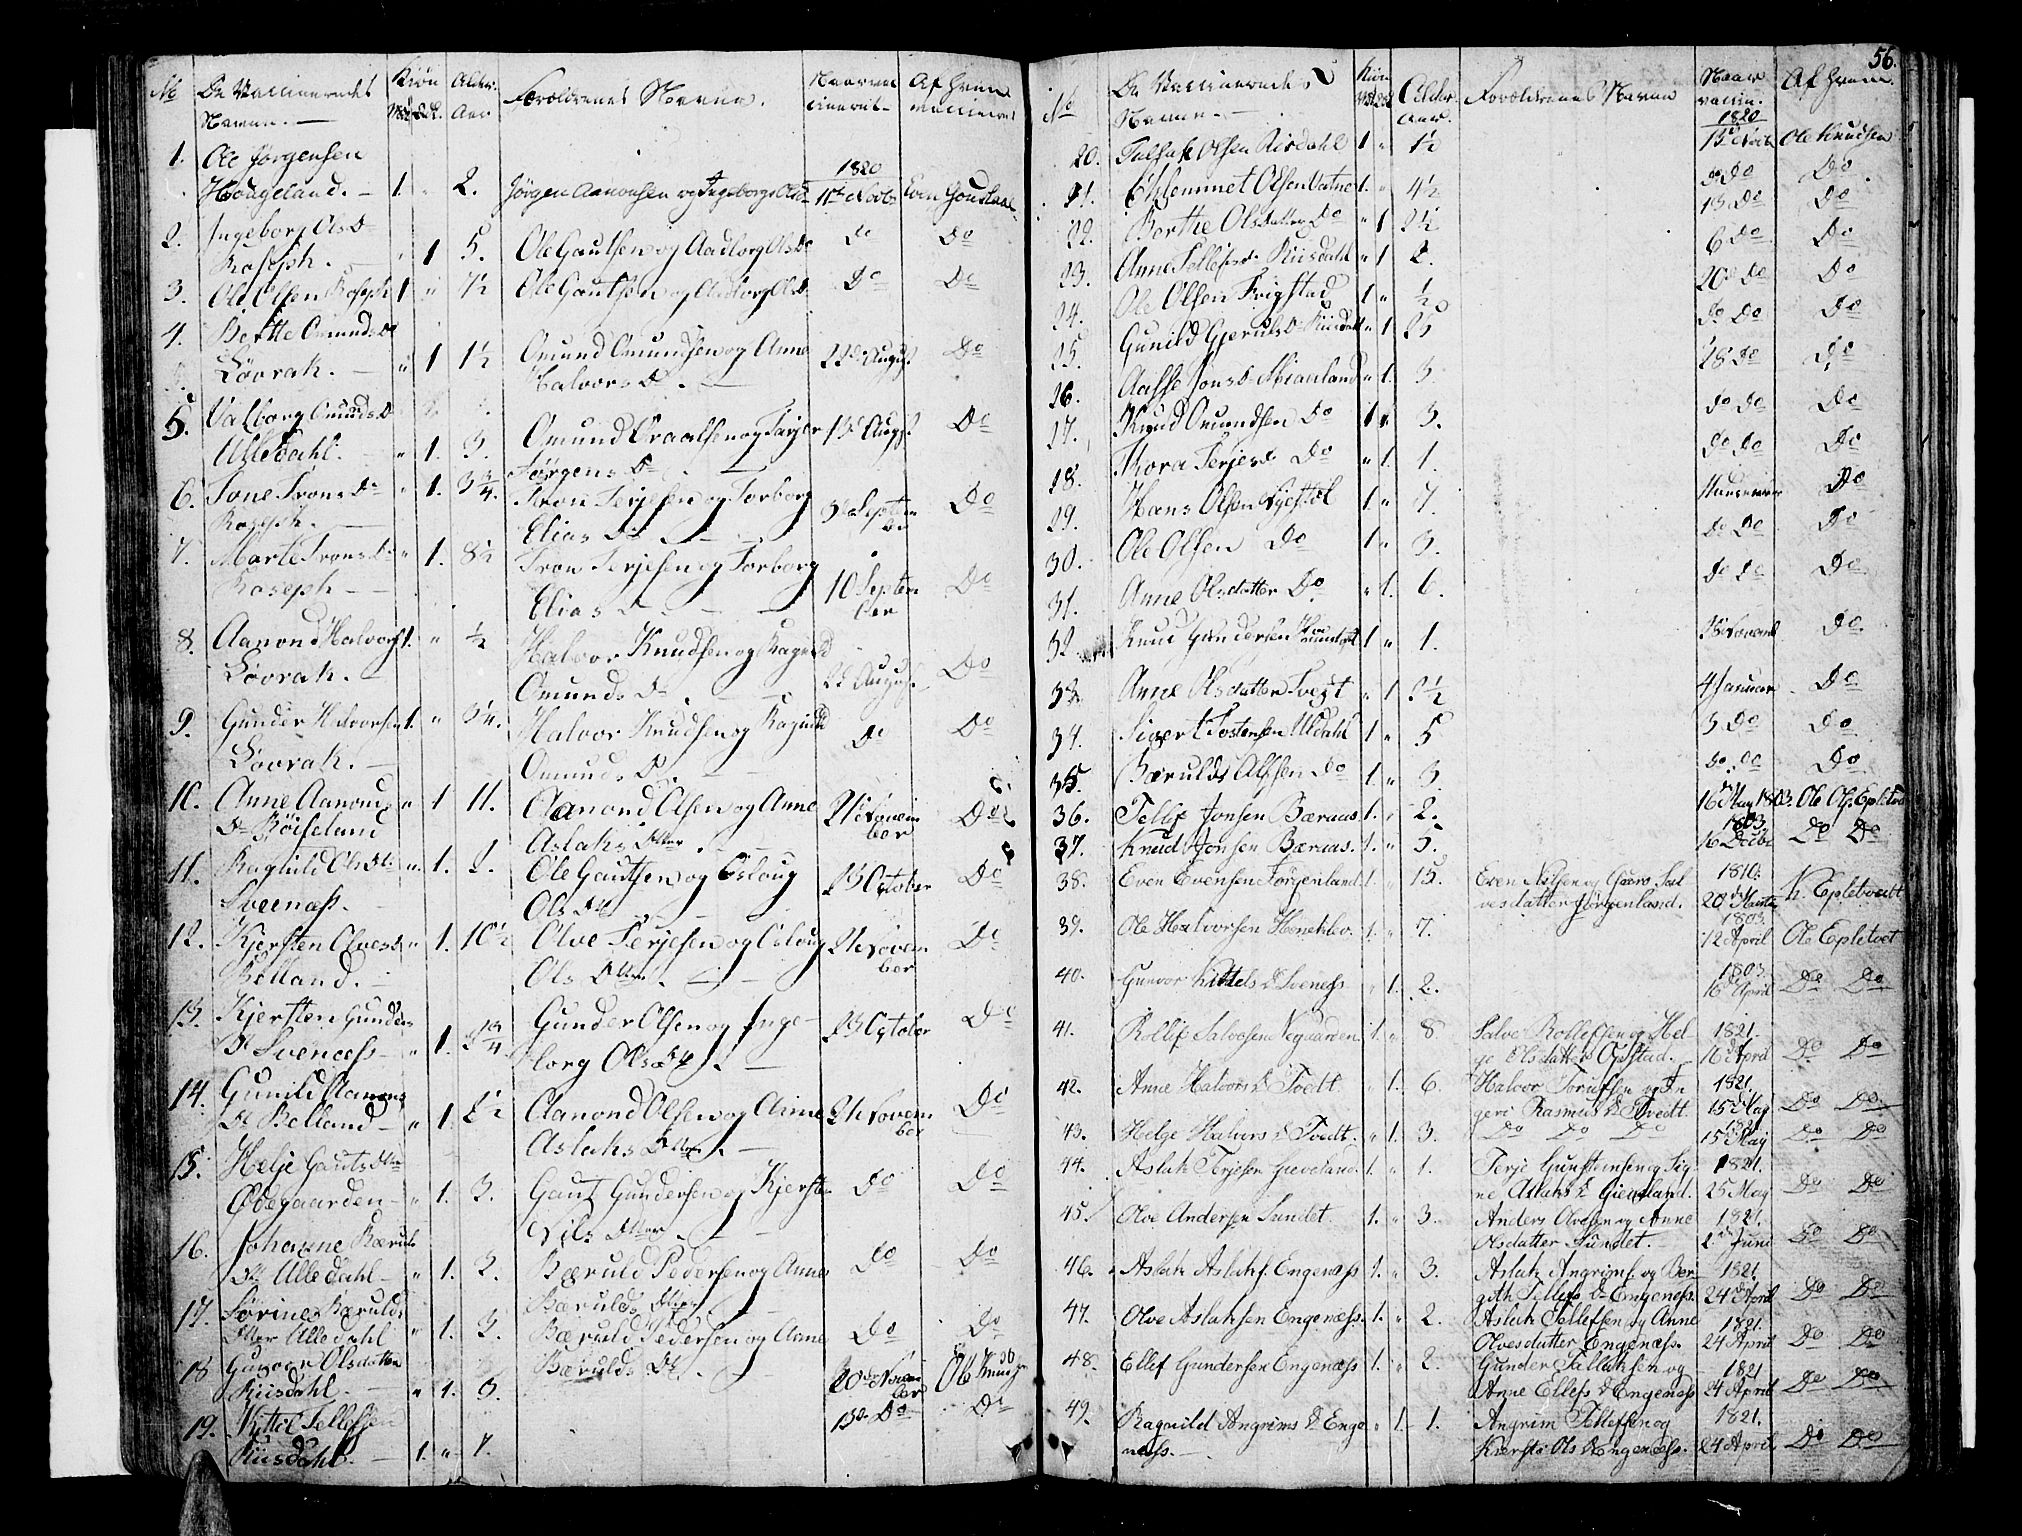 No De Vaccineredes Navne. Kiøn Alder. Aar Forældrenes Navne. Naar vaccineret Af hvem vaccineret
1. Ole Jørgensen
Hougeland. 1. " 2. Jørgen Aanonsen og Ingeborg Olsd. 1820 11te Novbr Even
2. Ingeborg Olsd
Roseph. " 1 5. Ole Gautsen og Aadlorg Olsd do Do
3. Ole Olsen Roseph 1 " 7½ Ole Gautsen og Aadlorg Olsd Do Do
4. Berthe Omunds D
Løvrak. " 1 1½ Omund Omundsen og Anne
Halvors D. 22de August Do
5. Valborg Omunds D
Ulledahl. " 1. 3. Omund Graalsen og Tarjer
Jørgens D. 13de Augst Do
6. Tone Trons D
Roseph. " 1. 3¾ Tron Terjesen og Torborg
Elias D. September Do
7. Marte Trons D
Roseph " 1. 8½ Tron Terjesen og Torborg
Elias D. 10 September Do
8. Aanond Halvors
Løvrak. 1. " ½ Halvor Knudsen og Ragnild
Omunds D. 22 August Do
9. Gunder Halvorsen
Løvrak. 1. " 3¼. Halvor Knudsen og Ragnild
Omunds D. Do Do
10. Anne Aanonds
D Røiseland " 1 11. Aanond Olsen og Anne
Aslaks Dtter. 21 November Do
11. Ragnild Ols Dtr
Sveenæs. " 1. 2. Ole Gautsen og Osloug
Ols Dtr 23 October Do
12. Kjersten Olves D
Belland. " 1. 10½ Olve Terjesen og Osloug
Ols Dtter. 21 November Do
13. Kjersten Gunders
D Svenæss " 1. Gunder Olsen og Inge-
borg Ols D. 23 October Do
14. Gunild Aanons
D Belland " 1. 2½ Aanond Olsen og Anne
Aslaks Dtter. 21 November Do
15. Helje Gauts Dtter
Ødegaarden " 1. 3. Gaut Gundersen og Kjersten
Nils Dtter Do Do
16. Johanne Bæruls
D Ulledahl " 1. 3. Bæruld Pedersen og Anne
Bærulds Dtter Do Do
17. Sørine Bærulds
Dtter Ulledahl " 1. 3. Bæruld Pedersen og Anne
Bærulds D. Do Do
18 Gunvor Olsdatter
Riisdahl. " 1. 3. 20de November Ole Knudsen
19. Kittel Tellefsen
Riisdahl. 1. " 7. 13de Do Do
56.
No De Vaccineredes Navne. Kiøn Alder aar. Forældrenes Navne Naar vaccin. Af hvem.
1820
20. Talsak Olsen Risdahl 1 " 1½ 13de Novbr Ole Knudsen
21. Ehlemmet Olsen Vatne 1. " 4½ do Do Do
22. Berthe Olsdatter Do " 1 2½ 13 Do Do
23. Anne Tellefsd Riisdahl " 1 2. 6 Do Do
24. Ole Olsen Frigstad 1 " ½ 20 do Do
25. Gunild Gjeruls D Riisdahl " 1 25 do Do Do
26. Aasse Jons D Mianland " 1. 3. 28 do Do
27. Knud Omundsen Do 1 " 3. do do Do
28. Thora Terjesd Do " 1. 1. do do Do
29. Hans Olsen Nyestøl 1 " 7. Do
30. Ole Olsen Do 1 " 3. do Do Do
31. Anne Olsdatter Do " 1. 6. do do Do
32. Knud Gundersen 1 " 1. Novemb Do
33. Anne Olsdatter Tvegt " 1 2½ 4 Januar Do
34. Sigert Tostensen Uldahl 1 " 5 3 Do Do
35. Bæruld Alfsen Do 1. " 3. do do Do
36. Tellef Jonsen Bæraas 1. " 2. 16 May 1803. Ole Ols. Epletvedt
37. Knud Jonsen Bæraas. 1. " 5. 1803 16 Decbr Do Do
38. Even Evensen Torgenland 1. " 15. Even Nilsen og Guro Sal-
vesdatter Jørgenland. 1810. 20de Martz K. Epletvedt
39. Ole Halvorsen Honehlev. 1. " 7. 1803. 12 April Ole Epletvet
40. Gunvor Kittels D Sveness " 1. 2. 1803. 16 April Do Do
41. Rollef Salvesen Neguarden. 1. " 8 Salve Rollefsen og Hel-
ge Elsdatter Opstad. 1821. 16 April Do Do
42. Anne Halvors D Tvedt " 1. 6. Halvor Torjussen og In
geri Rasmus D Tvedt 1821. 15 May Do Do
43. Helge Halvors D Tvedt. " 1. 3. Do Do Do 1821 15 May Do Do
44. Aslak Terjesen Gieveland 1. " 1. Terje Gunsteinsen og Sig-
ne Aslaks D Gieveland. 1821. 25 May Do Do
45. Olve Andersen Sundet. 1. " 3. Anders Olvesen og Anne
Olsdatter Sundet. 1821. 2. Juni Do Do
46. Aslak Aslaksf. Engenæss 1. " 3. Aslak Angrimf. og Ber-
geth Tellefs D Engeness. 1821. 24de April Do Do
47. Olve Aslaksen Engenæss. 1. " 2. Aslak Tellefsen og Anne
Olvesdatter Engenæss. 1821. 24 April Do Do
48. Ellef Gundersen Engenæss 1. " 2. Gunder Tallaksen og
Anne Ellefs D Engenæss 1821 24 April Do Do
49. Ragnild Angrims D Enge " 1. 1. Angrim Tellefsen og
næss. Kiersti Ols D Engenæss. 1821. 24 April Do Do